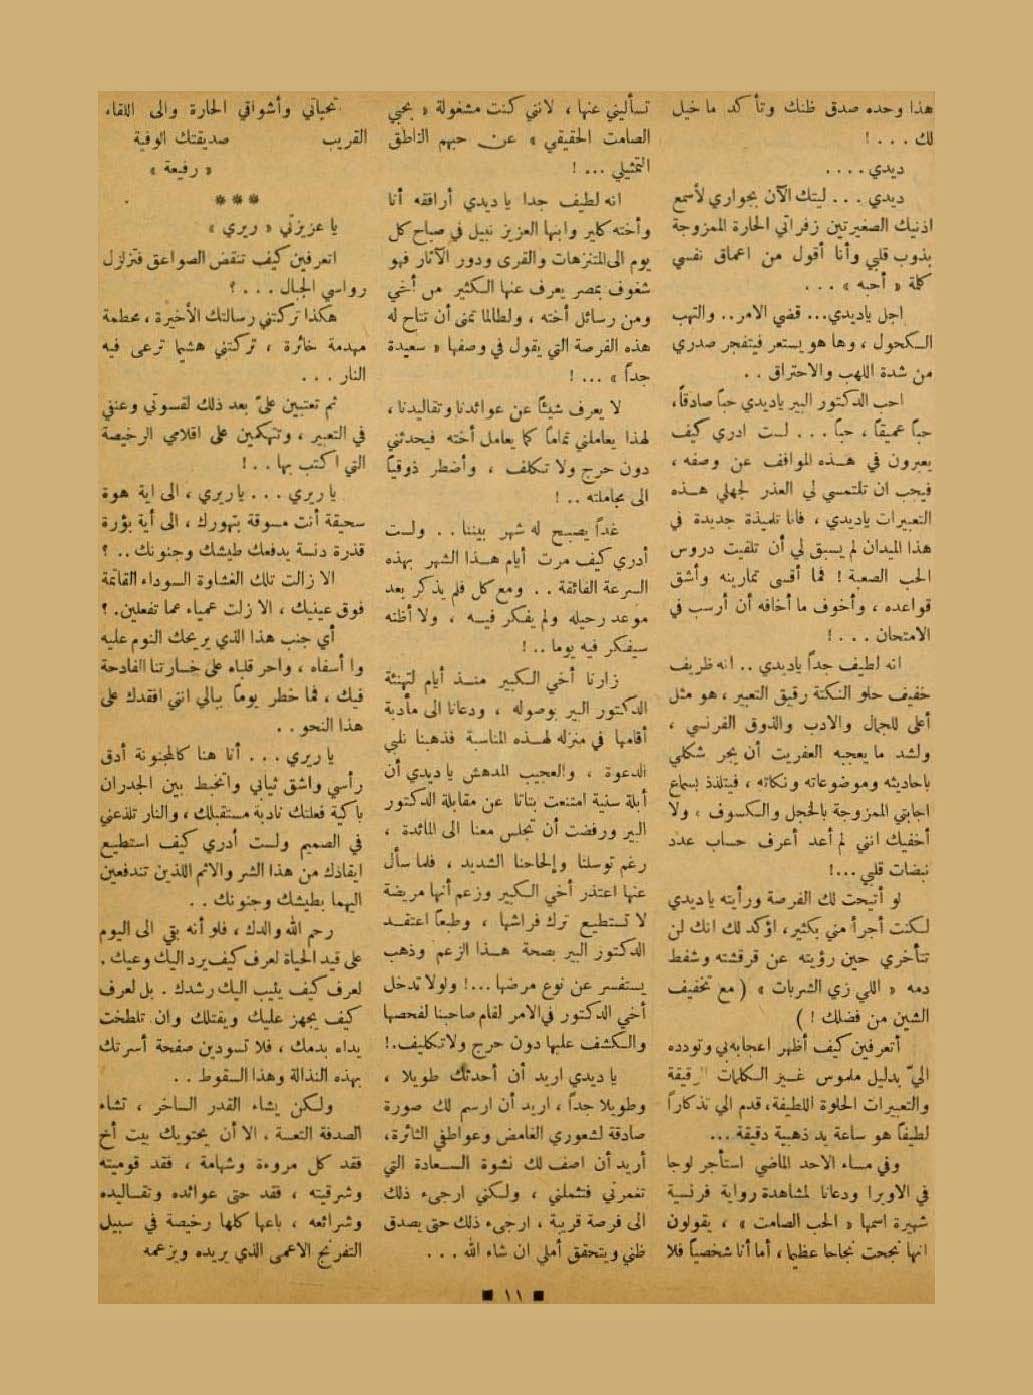 هذا وحده صدق ظنك وتأكد ما خيل
لك . . . !
ديدي . . . .
ديدي . . . ليتك الآن بجواري لأسمع
اذنيك الصغيرتين زفراتي الحارة الممزوجة
بذوب قلبي وأنا أقول من اعماق نفسي
كلمة « أحبه » . . .
اجل ياديدي... قضي الامر.. والتهب
الكحول ، وها هو يستعر فيتفجر صدري
من شدة اللهب والاحتراق . .
احب الدكتور البير ياديدي حباً صادقاً،
حباً عميقاً ، حباً . . . لست ادري كيف
يعبرون في هذه المواقف عن وصفه ،
فيجب ان تلتمسي لي العذر لجهلي هذه
التعبيرات ياديدي ، فانا تلميذة جديدة في
هذا الميدان لم يسبق لي أن تلقيت دروس
الحب الصعبة ! فما أقسى تمارينه وأشق
قواعده ، وأخوف ما أخافه أن أرسب في
الامتحان . . . !
انه لطيف جداً ياديدي .. انه ظريف
خفيف حلو النكتة رقيق التعبير ، هو مثل
أعلى للجمال والادب والذوق الفرنسي ،
ولشد ما يعجبه العفريت أن يجر شكلي
باحاديثه وموضوعاته ونكاته ، فيتلذذ بسماع
اجابتي الممزوجة بالخجل والكسوف ، ولا
أخفيك انني لم أعد أعرف حساب عدد
نبضات قلبي ...!
لو أتيحت لك الفرصة ورأيته ياديدي
لكنت أجرأ مني بكثير، اؤكد لك انك لن
تتأخري حين رؤيته عن قرقشته وشفط
دمه « اللي زي الشربات » ( مع تخفيف
الشين من فضلك ! )
أتعرفين كيف أظهر اعجابه بي وتودده
اليّ بدليل ملموس غير الكلمات الرقيقة
والتعبيرات الحلوة اللطيفة، قدم الي تذكاراً
لطيفاً هو ساعة يد ذهبية دقيقة....
وفي مساء الاحد الماضي استأجر لوجا
في الاوبرا ودعانا لمشاهدة رواية فرنسية
شهيرة اسمها « الحب الصامت » ، يقولون
انها نجحت نجاحا عظيما ، أما أنا شخصياً فلا
تسأليني عنها ، لانني كنت مشغولة « بحبي
الصامت الحقيقي » عن حبهم الناطق
التمثيلي ... !
انه لطيف جدا يا ديدي أرافقه أنا
وأخته كلير وابنها العزيز نبيل في صباح كل
يوم الى المتنزهات والقرى ودور الآثار فهو
شغوف بمصر يعرف عنها الكثير من أخي
ومن رسائل أخته ، ولطالما تمنى أن تتاح له
هذه الفرصة التي يقول في وصفها « سعيدة
جداً » ... !
لا يعرف شيئاً عن عوائدنا وتقاليدنا ،
لهذا يعاملني تماماً كما يعامل أخته فيحدثني
دون حرج ولا تكلف ، وأضطر ذوقياً
الى مجاملته .. !
غداً يصبح له شهر بيننا . . ولست
أدري كيف مرت أيام هذا الشهر بهذه
السرعة الفائقة . . ومع كل فلم يذكر بعد
موعد رحيله ولم يفكر فيه ، ولا أظنه
سيفكر فيه يوما . . !
زارنا أخي الكبير منذ أيام لتهنئة
الدكتور البير بوصوله ، ودعانا الى مأدبة
أقامها في منزله لهذه المناسبة فذهبنا نلبي
الدعوة ، والعجيب المدهش يا ديدي أن
أبلة سنية امتنعت بتاتا عن مقابلة الدكتور
البير ورفضت أن تجلس معنا الى المائدة ،
رغم توسلنا وإلحاحنا الشديد ، فلما سأل
عنها اعتذر أخي الكبير وزعم أنها مريضة
لا تستطيع ترك فراشها ، وطبعاً اعتقد
الدكتور البير بصحة هذا الزعم وذهب
يستفسر عن نوع مرضها ...! ولولا تدخل
أخي الدكتور في الامر لقام صاحبنا لفحصها
والكشف عليها دون حرج ولا تكليف.!
يا ديدي اريد أن أحدثك طويلا ،
وطويلا جداً ، اريد أن ارسم لك صورة
صادقة لشعوري الغامض وعواطفي الثائرة،
أريد أن اصف لك نشوة السعادة التي
تغمرني فتثملني ، ولكني ارجىء ذلك
الى فرصة قريبة ، ارجىء ذلك حتى يصدق
ظني ويتحقق أملي ان شاء الله . . .
تحياتي وأشواقي الحارة والى اللقاء
القريب صديقتك الوفية
« رفيعة »
***
يا عزيزتي « ريري »
اتعرفين كيف تنقض الصواعق فتزلزل
رواسي الجبال . . . ؟
هكذا تركتني رسالتك الأخيرة ، محطمة
مهدمة خائرة ، تركتني هشيما ترعى فيه
النار . . .
ثم تعتبين عليّ بعد ذلك لقسوتي وعنفي
في التعبير ، وتتهكمين على اقلامي الرخيصة
التي اكتب بها . . !
يا ريري . . . ياريري ، الى اية هوة
سحيقة أنت مسوقة بتهورك ، الى أية بؤرة
قذرة دنسة يدفعك طيشك وجنونك .. ؟
الا زالت تلك الغشاوة السوداء القاتمة
فوق عينيك ، الا زلت عمياء عما تفعلين. ؟
أي جنب هذا الذي يريحك النوم عليه
وا أسفاه ، واحر قلباه على خسارتنا الفادحة
فيك ، فما خطر يوماً ببالي انني افقدك على
هذا النحو . .
يا ريري . . . أنا هنا كالمجنونة أدق
رأسي واشق ثيابي واتخبط بين الجدران
باكية فعلتك نادبة مستقبلك ، والنار تلذعني
في الصميم ولست أدري كيف استطيع
ايقاذك من هذا الشر والاثم اللذين تندفعين
اليهما بطيشك وجنونك . .
رحم الله والدك ، فلو أنه بقي الى اليوم
على قيد الحياة لعرف كيف يرد اليك وعيك .
لعرف كيف يثيب اليك رشدك . بل لعرف
كيف يجهز عليك ويقتلك وان تلطخت
يداه بدمك ، فلا تسودين صفحة أسرتك
بهذه النذالة وهذا السقوط . .
ولكن يشاء القدر الساخر ، تشاء
الصدفة التعسة ، الا أن يحتويك بيت أخ
فقد كل مروءة وشهامة ، فقد قوميته
وشرقيته ، فقد حتى عوائده وتقاليده
وشرائعه ، باعها كلها رخيصة في سبيل
التفرنج الاعمى الذي يريده ويزعمه
■ ١١ ■